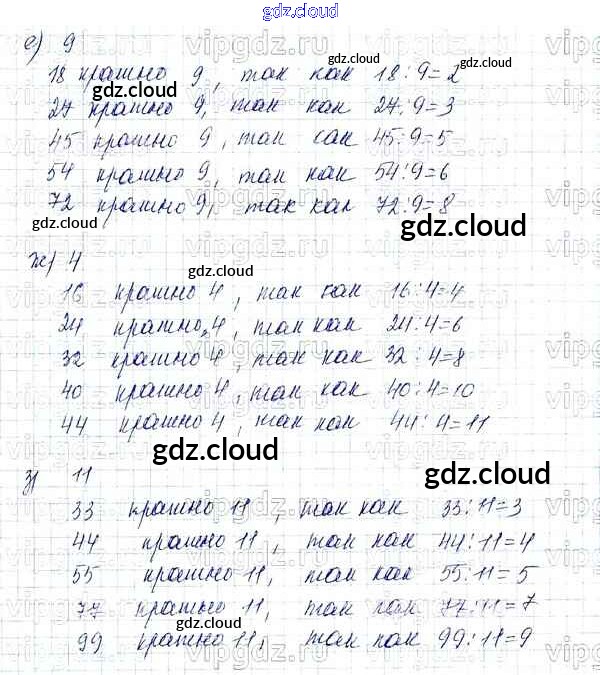 gdz.cloud
е) 9
18 кратно 9, так как 18:9=2
27 кратно 9, так как 27:9=3
45 кратно 9, так как 45:9=5
54 кратно 9, так как 54:9=6
72 кратно 9, так как 72:9=8
ж) 4
16 кратно 4, так как 16:4=4
24 кратно 4, так как 24:4=6
32 кратно 4, так как 32:4=8
40 кратно 4, так как 40:4=10
44 кратно 4, так как 44:4=11
gdz.cloud
з) 11
33 кратно 11, так как 33:11=3
44 кратно 11, так как 44:11=4
55 кратно 11, так как 55:11=5
77 кратно 11, так как 77:11=7
99 кратно 11, так как 99:11=9